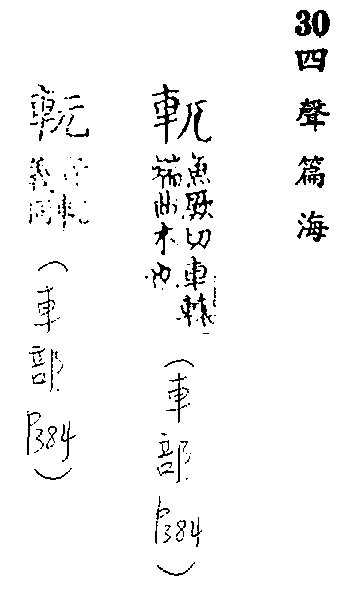 30 四聲篇海
軏
魚厥切車轅
端曲木也
(車部 P384)
音軏
義同
(車部 P384)